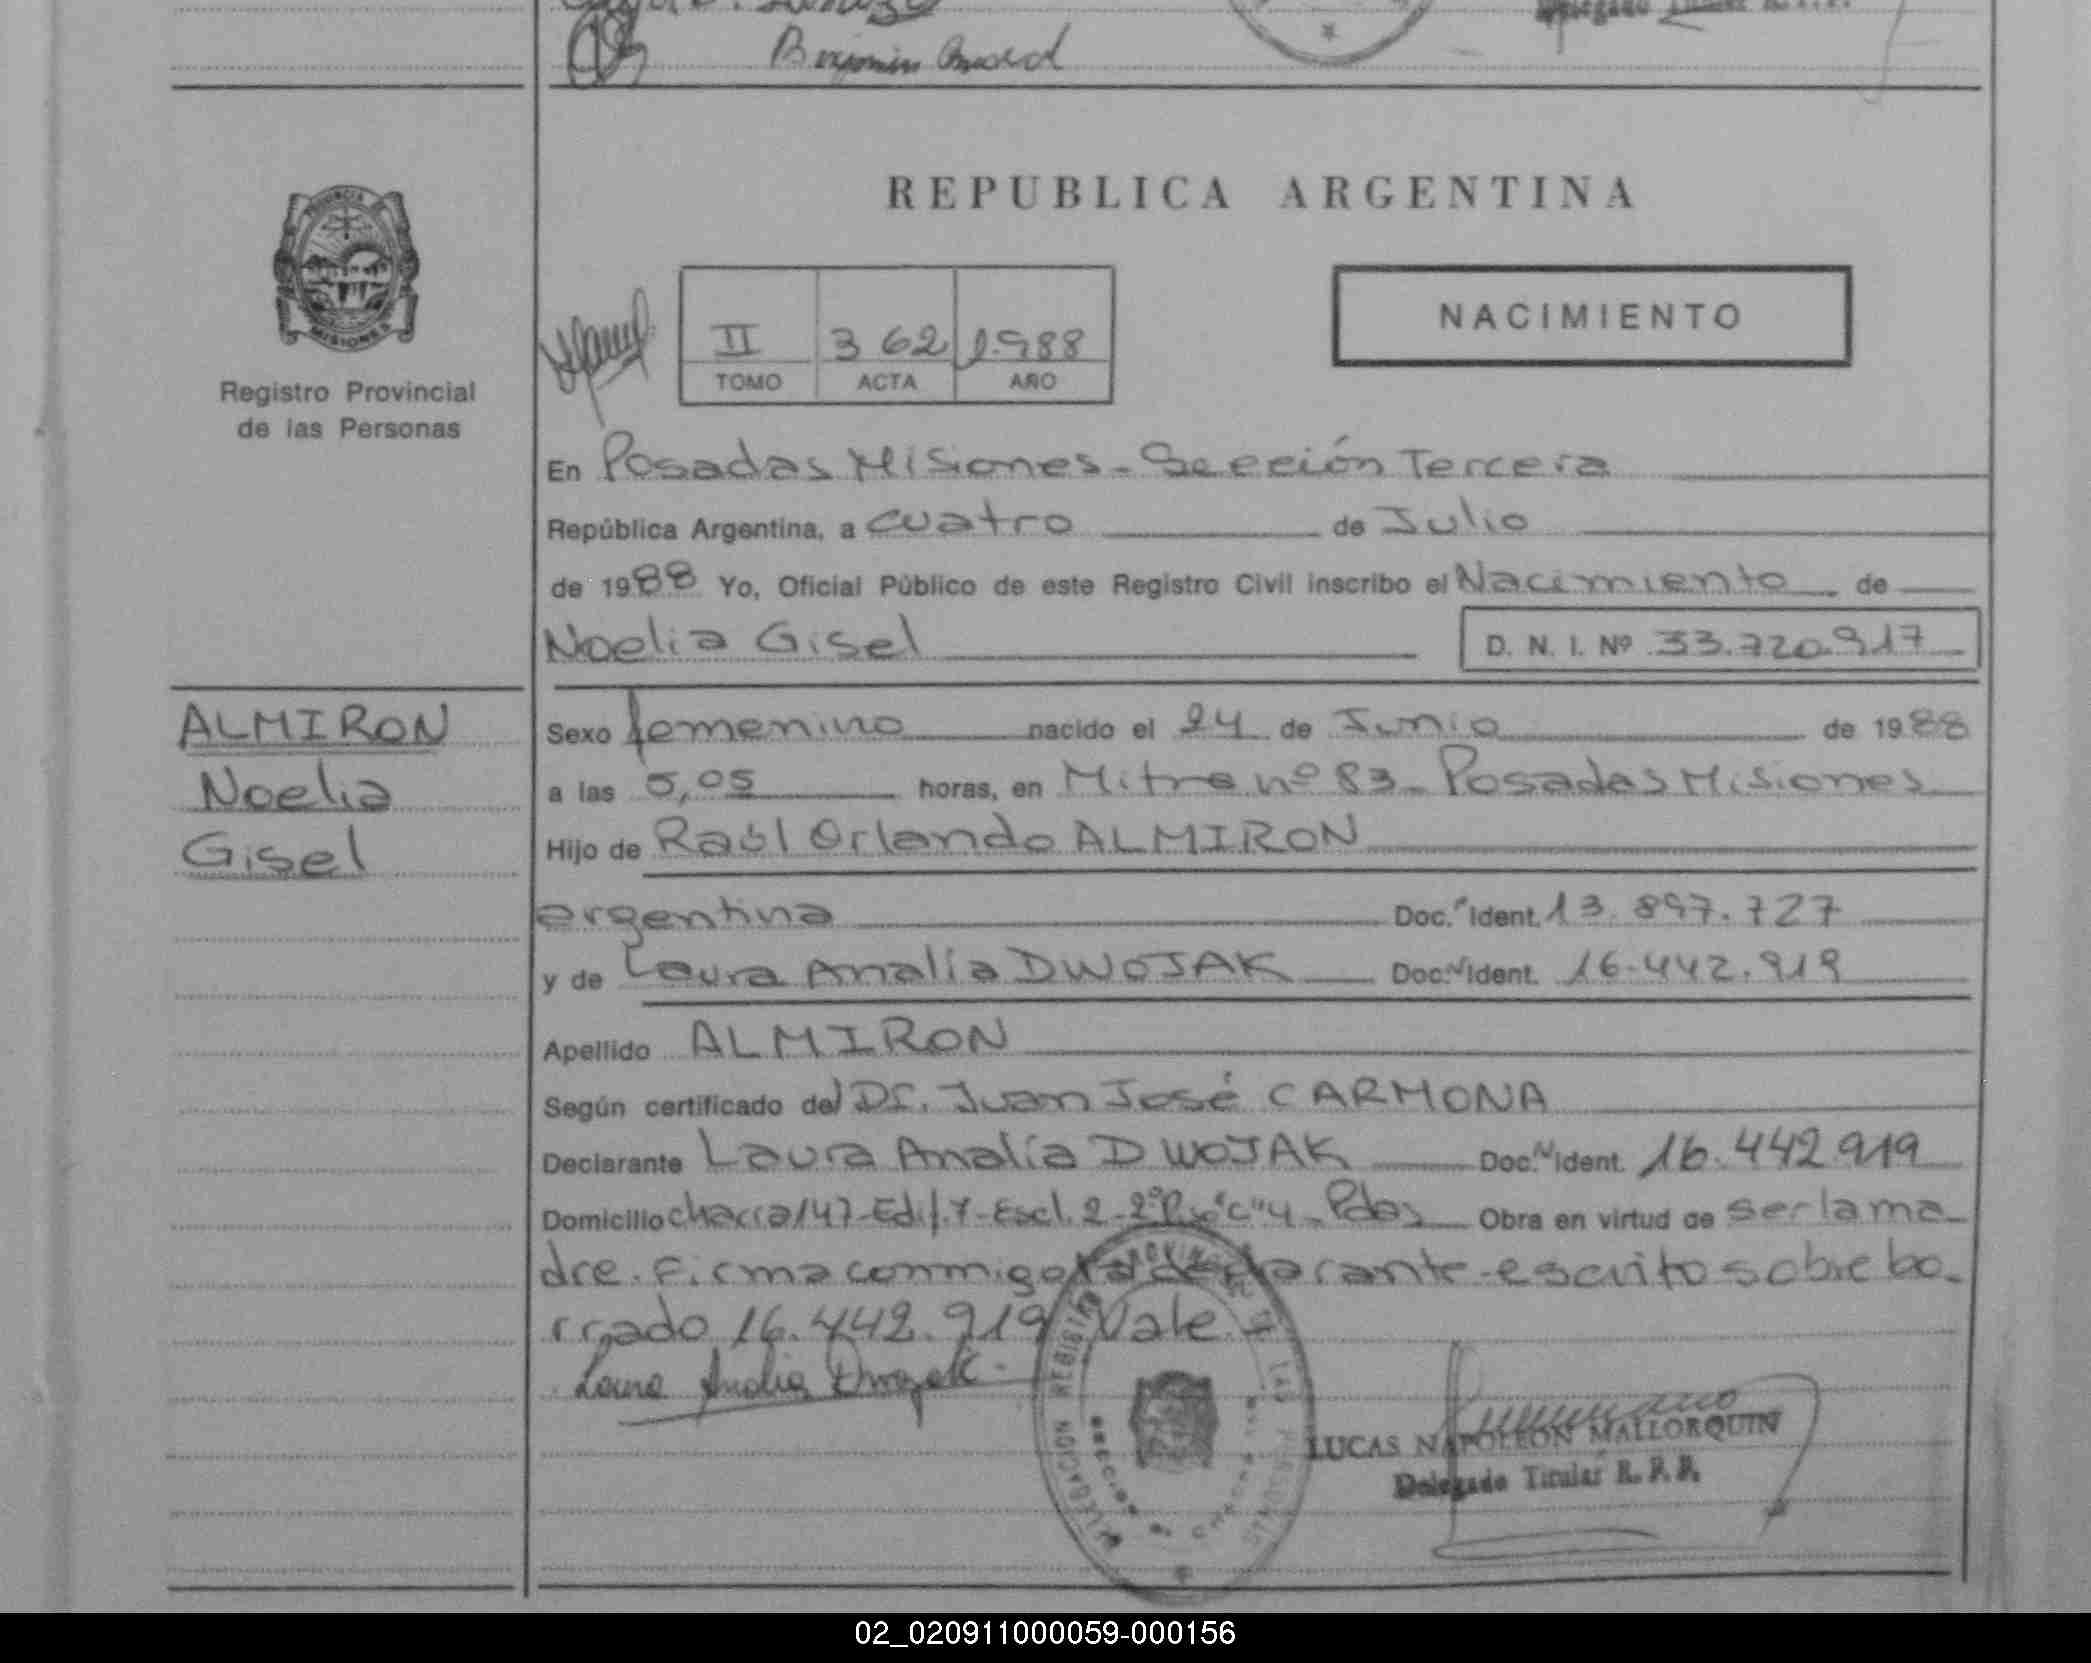 Delegado Titular R.P.P.
REPUBLICA ARGENTINA
NACIMIENTO
MISIONES
Registro Provincial
de las Personas
II 362 1.988
TOMO ACTA AÑO
En Posadas Misiones - Sección Tercera
República Argentina, a cuatro de Julio
de 1988 Yo, Oficial Público de este Registro Civil inscribo el Nacimiento de
Noelia Gisel D. N. I. Nº 33.720.917
ALMIRON
Noelia
Gisel
Sexo femenino nacido el 24 de Junio de 1988
a las 5,05 horas, en Mitre nº 83 - Posadas Misiones
Hijo de Raúl Orlando ALMIRON
argentina Doc. Ident. 13.897.727
y de Laura Analía DWOJAK Doc. Ident. 16.442.919
Apellido ALMIRON
Según certificado del Dr. Juan José CARMONA
Declarante Laura Analía DWOJAK Doc. Ident. 16.442.919
Domicilio chacra 147 - Edif. 7 - Escl. 2 - 2º "C" 4 - Pdas Obra en virtud de ser la ma-
dre. Firma conmigo la declarante - escrito sobre bo-
rrado 16.442.919 Vale.
Laura Analia Dwojak
LUCAS NAPOLEON MALLORQUIN
Delegado Titular R. P. P.
02_020911000059-000156